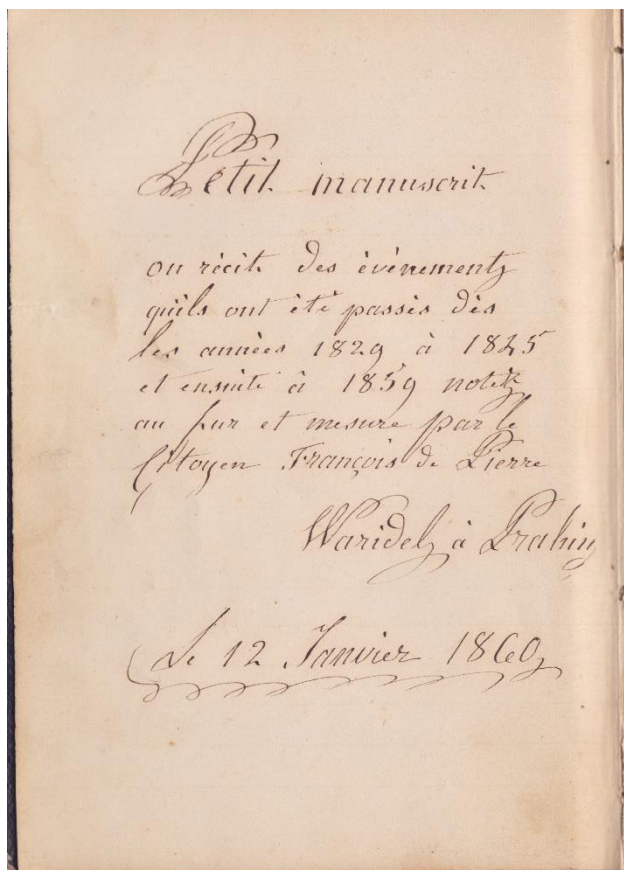 Petit manuscrit
ou récit des évènements
qu'ils ont été passés dès
les années 1829 à 1845
et ensuite à 1859 notés
au fur et mesure par le
Citoyen François de Pierre
Waridel, à Prahins
Le 12 Janvier 1860,